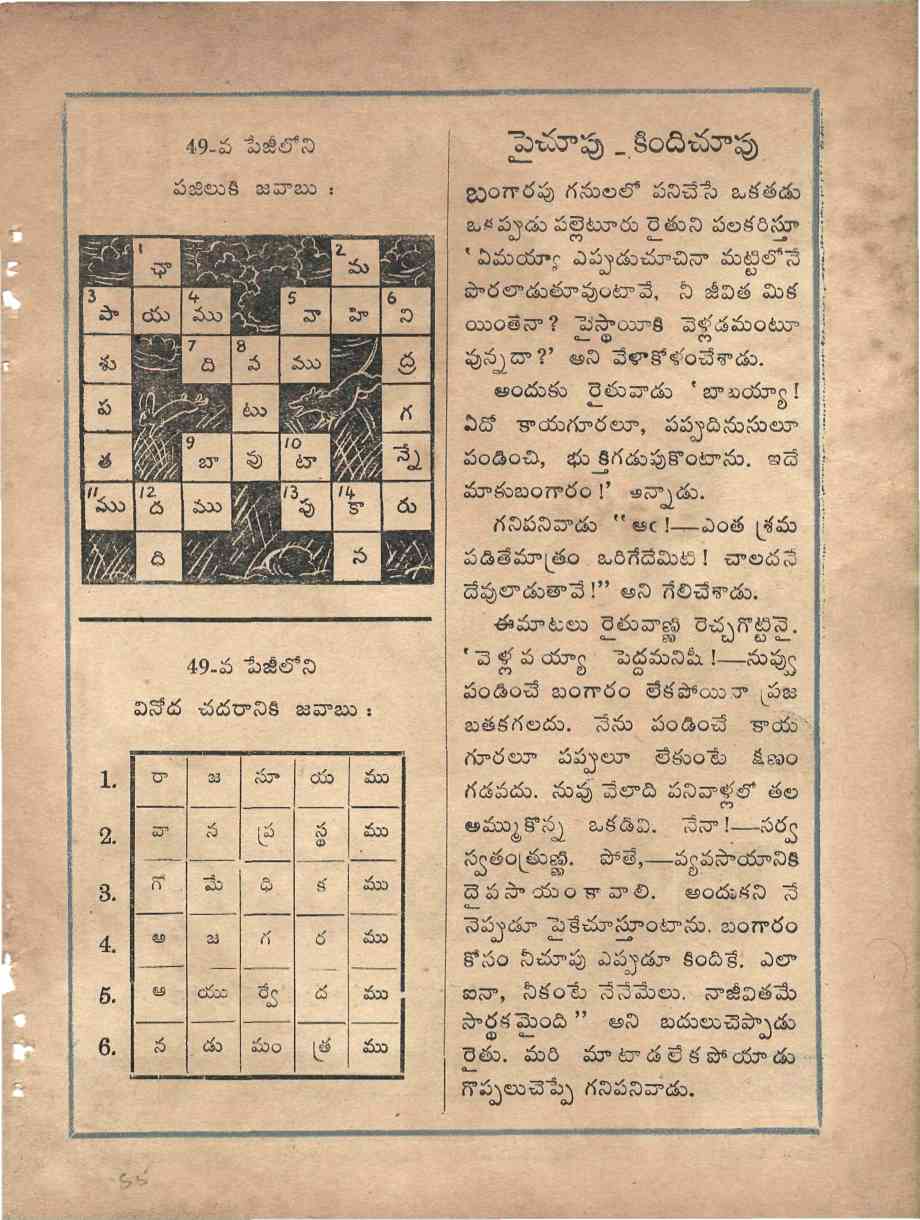 49-వ పేజీలోని
పజిలుకి జవాబు :
1 ఛా 2 మ
3 పా య 4 ము 5 వా హి 6 ని
శు 7 ది 8 వ ము ద్ర
ప టు గ
త 9 బా వు 10 టా న్నే
11 ము 12 ద ము 13 పు 14 కా రు
ది న
49-వ పేజీలోని
వినోద చదరానికి జవాబు :
1. రా జ సూ య ము
2. వా న ప్ర స్థ ము
3. గో మే ధి క ము
4. అ జ గ ర ము
5. ఆ యు ర్వే ద ము
6. న డు మం త్ర ము
పైచూపు - కిందిచూపు
బంగారపు గనులలో పనిచేసే ఒకతడు
ఒకప్పుడు పల్లెటూరు రైతుని పలకరిస్తూ
‘ ఏమయ్యా ఎప్పుడుచూచినా మట్టిలోనే
పొరలాడుతూవుంటావే, నీ జీవిత మిక
యింతేనా? పైస్థాయీకి వెళ్లడమంటూ
వున్నదా?’ అని వేళాకోళంచేశాడు.
అందుకు రైతువాడు ‘ బాబయ్యా!
ఏదో కాయగూరలూ, పప్పుదినుసులూ
పండించి, భుక్తిగడుపుకొంటాను. ఇదే
మాకుబంగారం!’ అన్నాడు.
గనిపనివాడు “ ఆఁ!—ఎంత శ్రమ
పడితేమాత్రం ఒరిగేదేమిటి! చాలదనే
దేవులాడుతావే!” అని గేలిచేశాడు.
ఈమాటలు రైతువాణ్ణి రెచ్చగొట్టినై.
‘ వెళ్లవయ్యా పెద్దమనిషీ!—నువ్వు
పండించే బంగారం లేకపోయినా ప్రజ
బతకగలదు. నేను పండించే కాయ
గూరలూ పప్పులూ లేకుంటే క్షణం
గడవదు. నువు వేలాది పనివాళ్లలో తల
అమ్ముకొన్న ఒకడివి. నేనా!—సర్వ
స్వతంత్రుణ్ణి. పోతే,—వ్యవసాయానికి
దైవసాయం కావాలి. అందుకని నే
నెప్పుడూ పైకేచూస్తూంటాను. బంగారం
కోసం నీచూపు ఎప్పుడూ కిందికే. ఎలా
ఐనా, నీకంటే నేనేమేలు. నాజీవితమే
సార్థకమైంది ” అని బదులుచెప్పాడు
రైతు. మరి మాటాడలేకపోయాడు
గొప్పలుచెప్పే గనిపనివాడు.
55